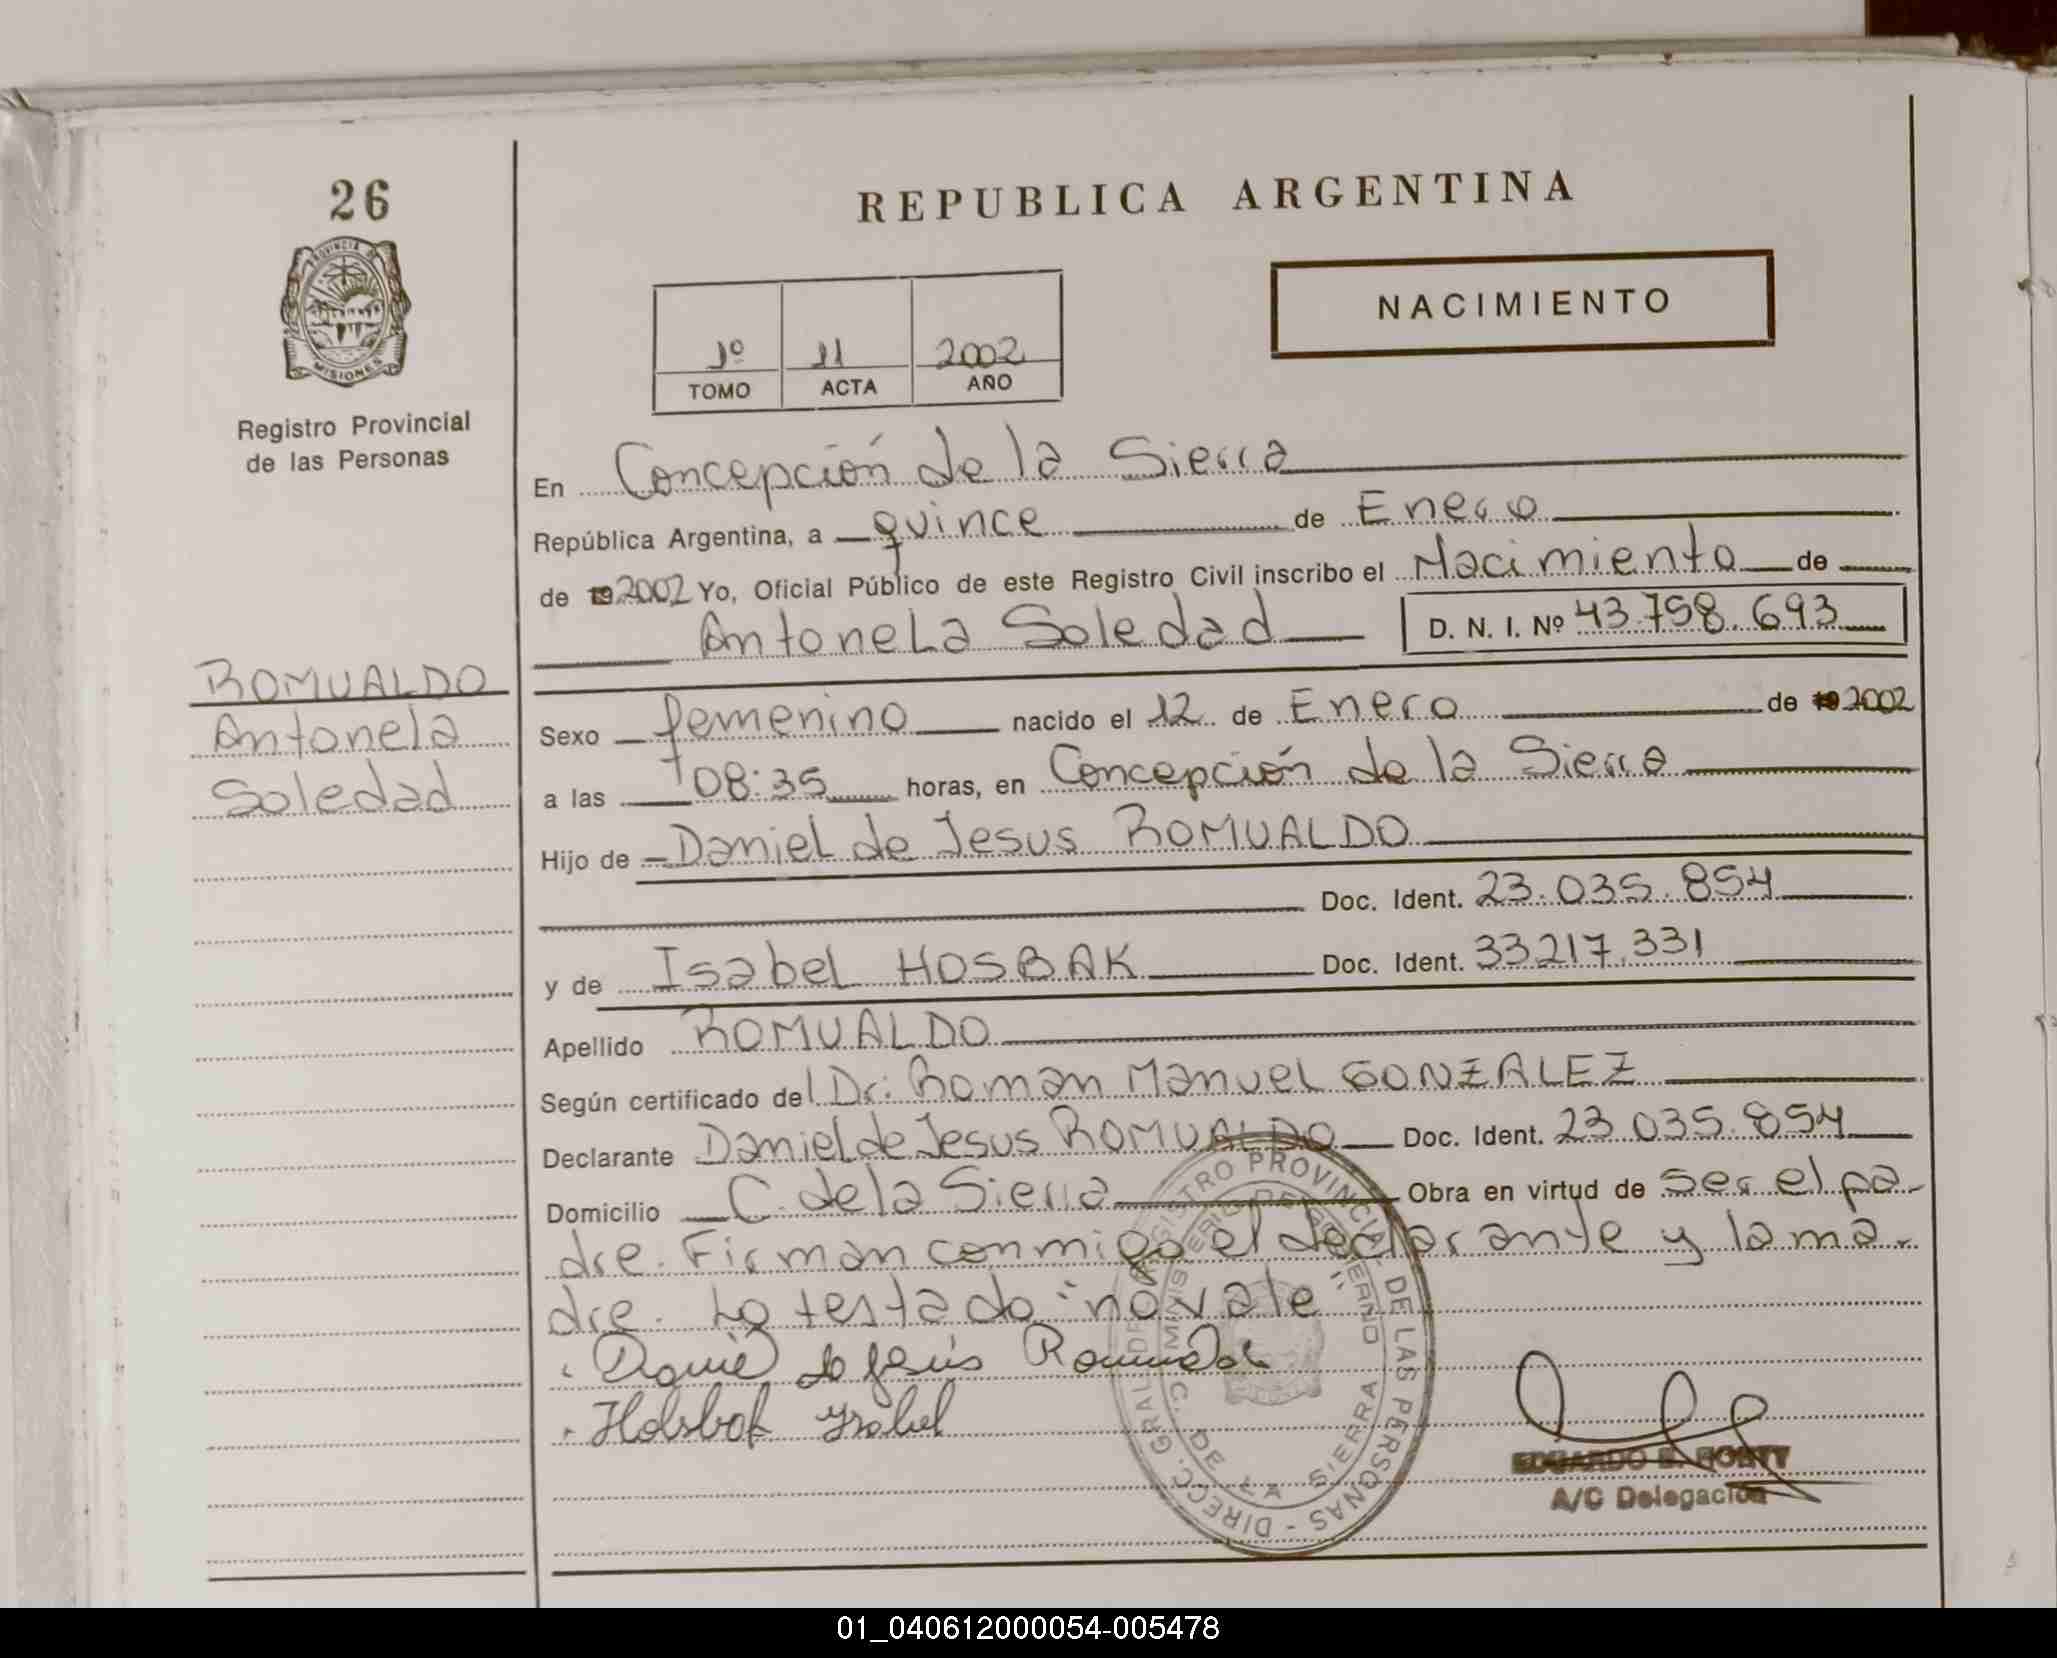 26
PROVINCIA DE
MISIONES
Registro Provincial
de las Personas
REPUBLICA ARGENTINA
NACIMIENTO
1º 11 2002
TOMO ACTA AÑO
En Concepción de la Sierra
República Argentina, a quince de Enero
de 19 2002 Yo, Oficial Público de este Registro Civil inscribo el Nacimiento de
Antonela Soledad D. N. I. Nº 43.758.693
ROMUALDO
Antonela
Soledad
Sexo femenino nacido el 12 de Enero de 19 2002
a las 08:35 horas, en Concepción de la Sierra
Hijo de Daniel de Jesus ROMUALDO
Doc. Ident. 23.035.854
y de Isabel HOSBAK Doc. Ident. 33217.331
Apellido ROMUALDO
Según certificado del Dr. Roman Manuel GONZALEZ
Declarante Daniel de Jesus ROMUALDO Doc. Ident. 23.035.854
Domicilio C. de la Sierra Obra en virtud de ser el pa-
dre. Firman conmigo el declarante y la ma-
dre. Lo testado "no vale"
Daniel de Jesús Romualdo
Holsbak Ysabel
DIRECC. GRAL. DE REGISTRO PROVINCIAL DE LAS PERSONAS -
MINISTERIO DE GOBIERNO
C. DE LA SIERRA
EDUARDO E.
A/C Delegación
01_040612000054-005478